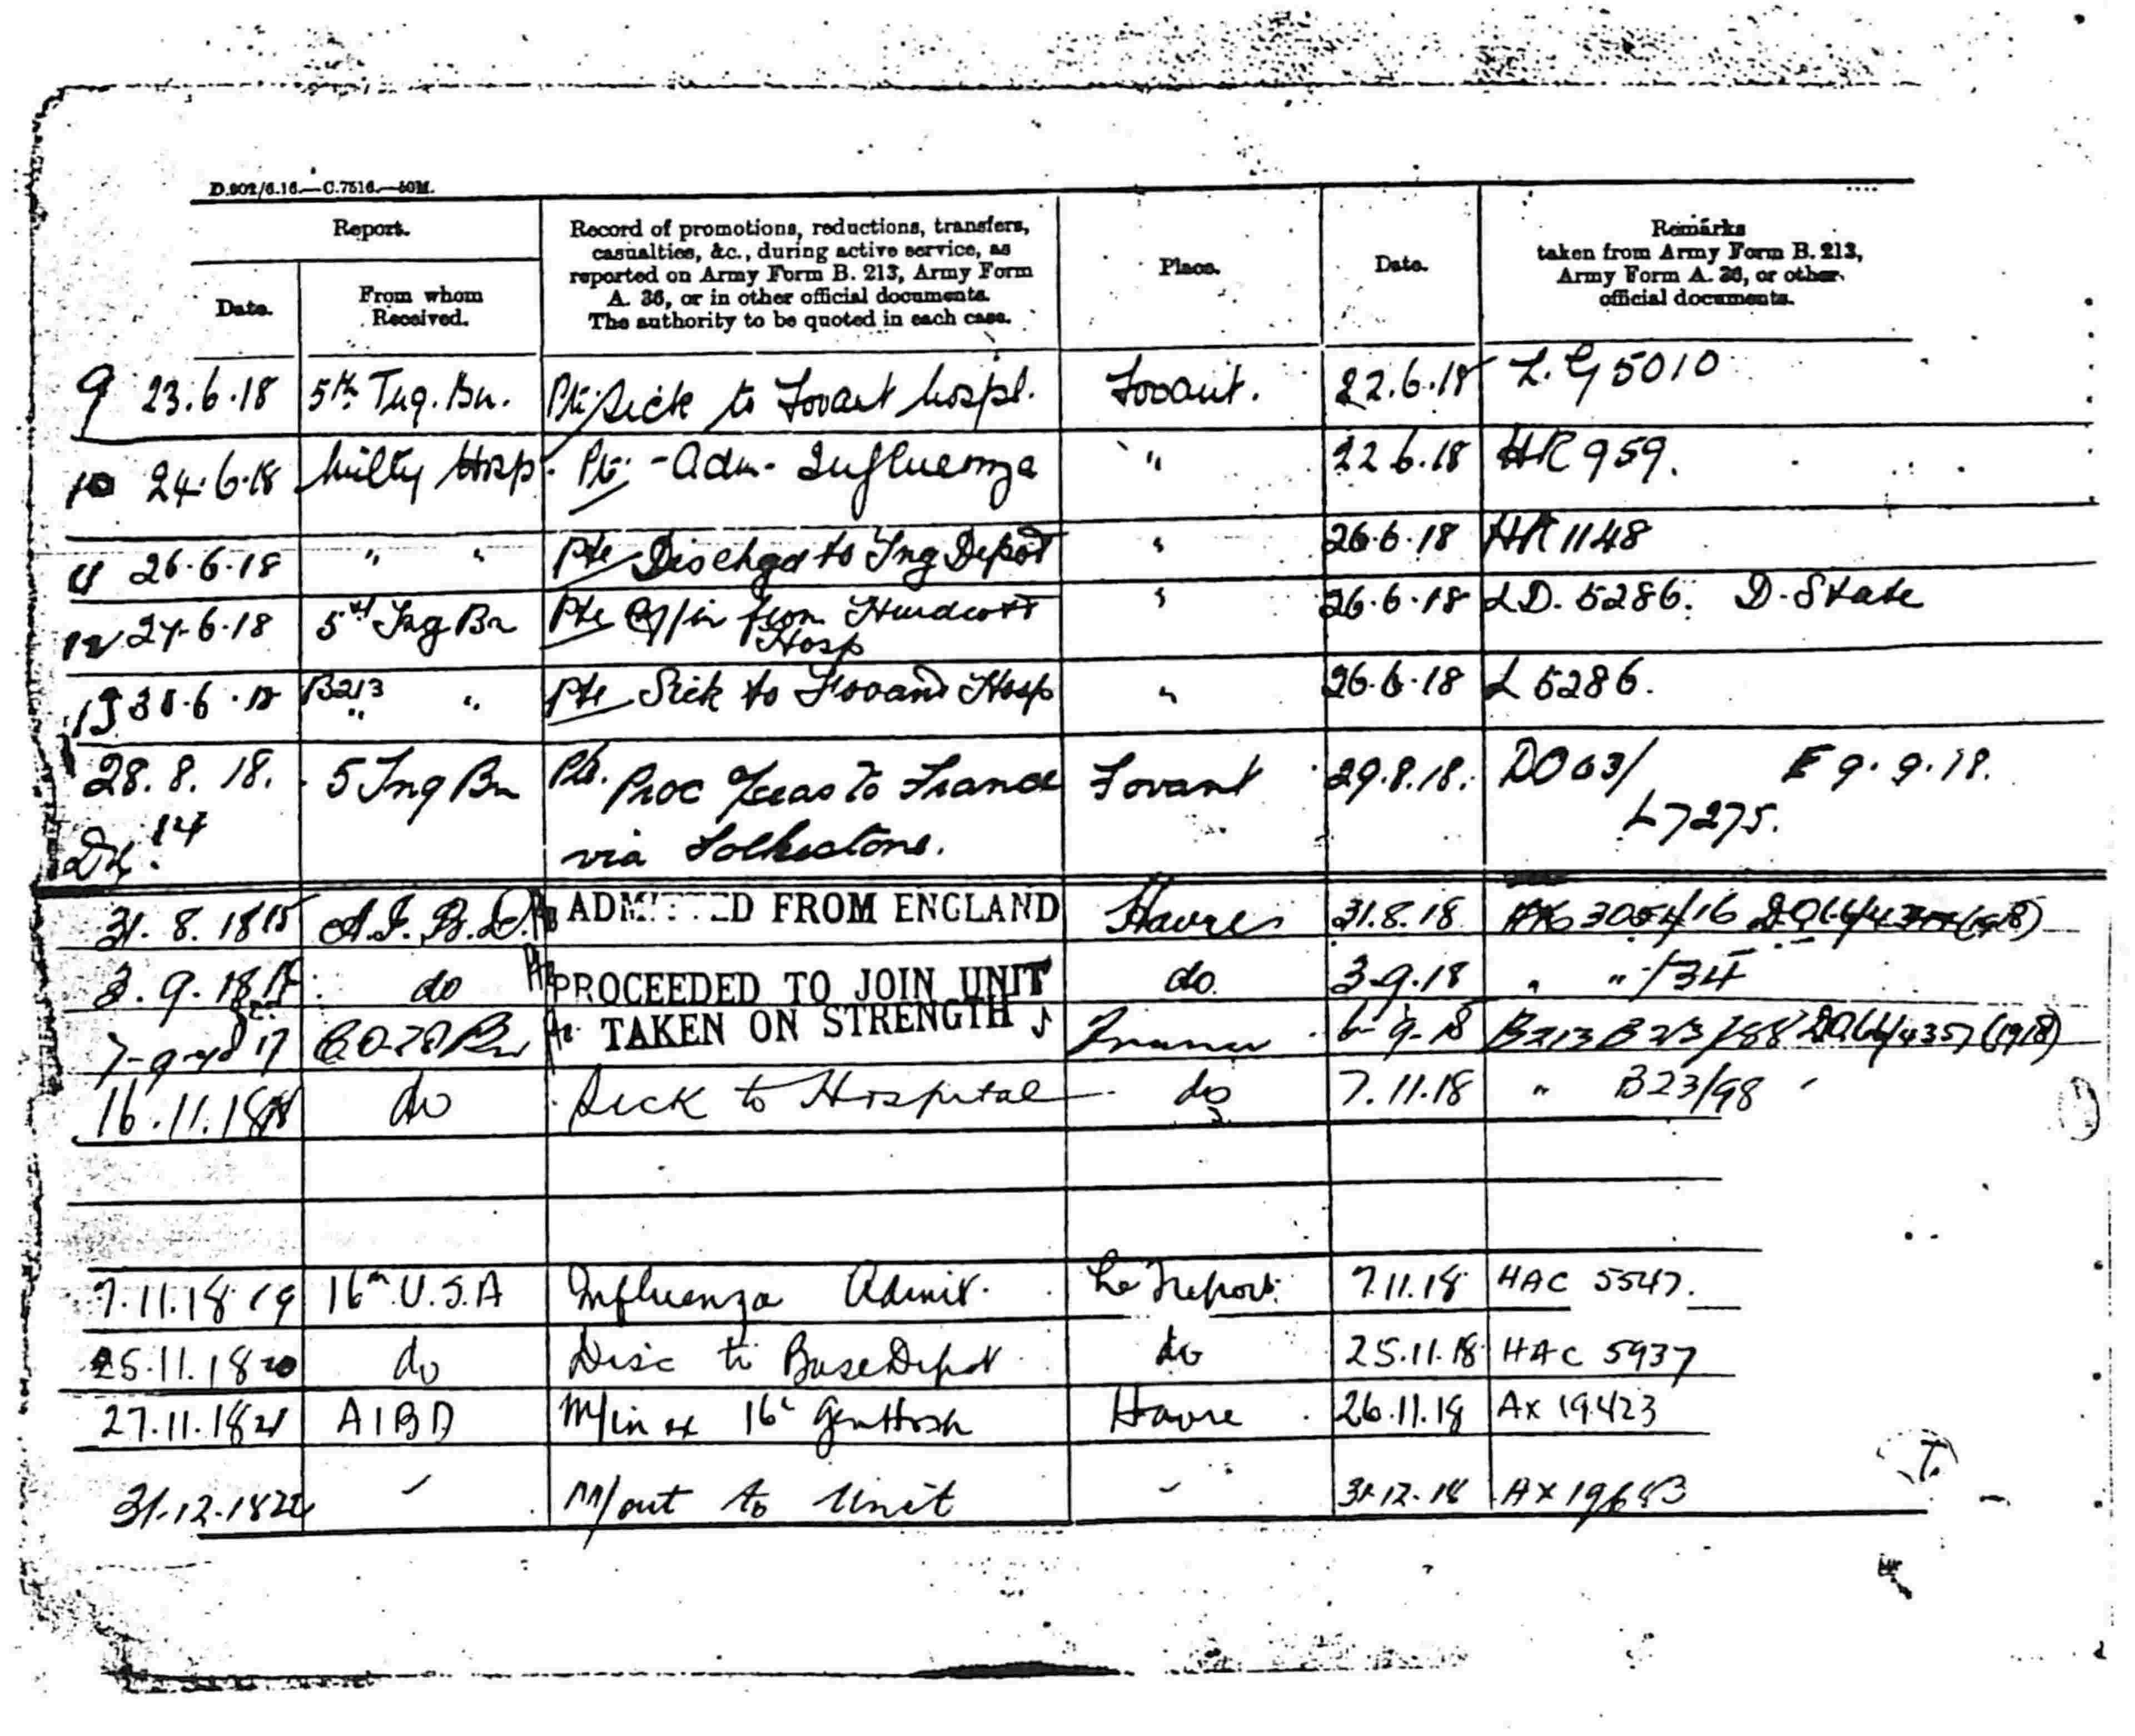 D.902/6.16.—C.7516.—50M.
Report.
Date.
From whom
Received.
Record of promotions, reductions, transfers,
casualties, &c., during active service, as
reported on Army Form B. 213, Army Form
A. 36, or in other official documents.
The authority to be quoted in each case.
Place.
Date.
Remarks
taken from Army Form B. 213,
Army Form A. 36, or other
official documents.
9 23.6.18 5th Tng. Bn. Pte Sick to Fovant hospl. Fovant. 22.6.18 L.G 5010
10 24.6.18 Milty Hosp. Pte - Adm - Influenza " 22.6.18 HR 959.
11 26.6.18 " " Pte Dischgd to Tng Depot " 26.6.18 HR 1148
12 27.6.18 5th Tng Bn Pte M/in from Hurdcott
Hosp " 26.6.18 LD. 5286. D. State
13 30.6.18 B213 " " Pte Sick to Fovant Hosp " 26.6.18 L 5286.
28.8.18. 5 Tng Bn Pte. Proc O/seas to France Fovant 29.8.18. DO 63/ E 9.9.18.
14 via Folkestone. L7275.
31.8.18 15 A.I.B.D. ADMITTED FROM ENGLAND Havre 31.8.18
3.9.18 do PROCEEDED TO JOIN UNIT do 3.9.18 " " /34
7-9-18 17 TAKEN ON STRENGTH France 6-9-18 B213 DA64/4357 (1918)
16.11.18 18 do Sick to Hospital do 7.11.18 " B23/98
7.11.18 19 16th U.S.A Influenza Admit. Le Treport. 7.11.18 HAC 5547.
25.11.18 20 do Disc to Base Depot do 25.11.18 HAC 5937
27.11.18 21 AIBD M/in ex 16th Gen Hosp Havre 26.11.18 AX 19423
31.12.18 22 " M/out to Unit " 31.12.18